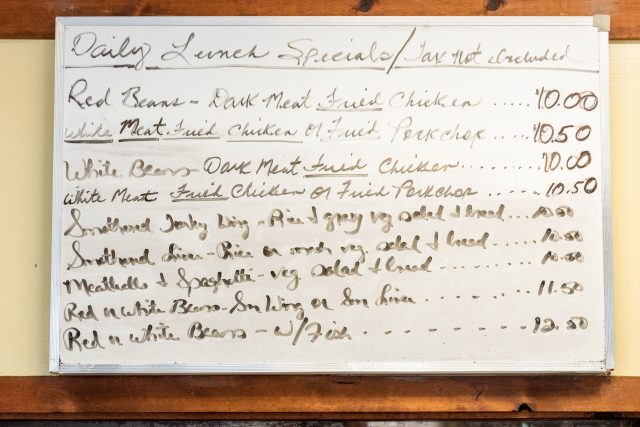 Daily Lunch Specials/Tax Not Included
Red Beans - Dark Meat Fried Chicken ..... 10.00
White Meat Fried Chicken or Fried Porkchop ..... 10.50
White Beans - Dark Meat Fried Chicken ......... 10.00
White Meat Fried Chicken or Fried Porkchop ...... 10.50
Smothered Turkey Wing - Rice & gravy veg salad & bread ... 10.50
Smothered Liver - Rice or mash veg salad & bread ..... 10.50
Meatballs & Spaghetti - veg salad & bread ........ 10.50
Red or White Beans - Sm Wing or Sm Liver ........ 11.50
Red or White Beans - w/Fish ......... 12.50